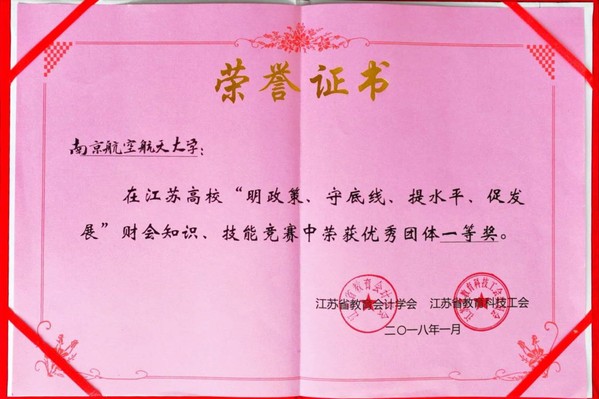 荣誉证书
南京航空航天大学：
在江苏高校“明政策、守底线、提水平、促发
展”财会知识、技能竞赛中荣获优秀团体一等奖。
江苏省教育会计学会 江苏省教育科技工会
二〇一八年一月